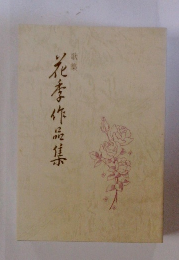 歌集
花季作品集